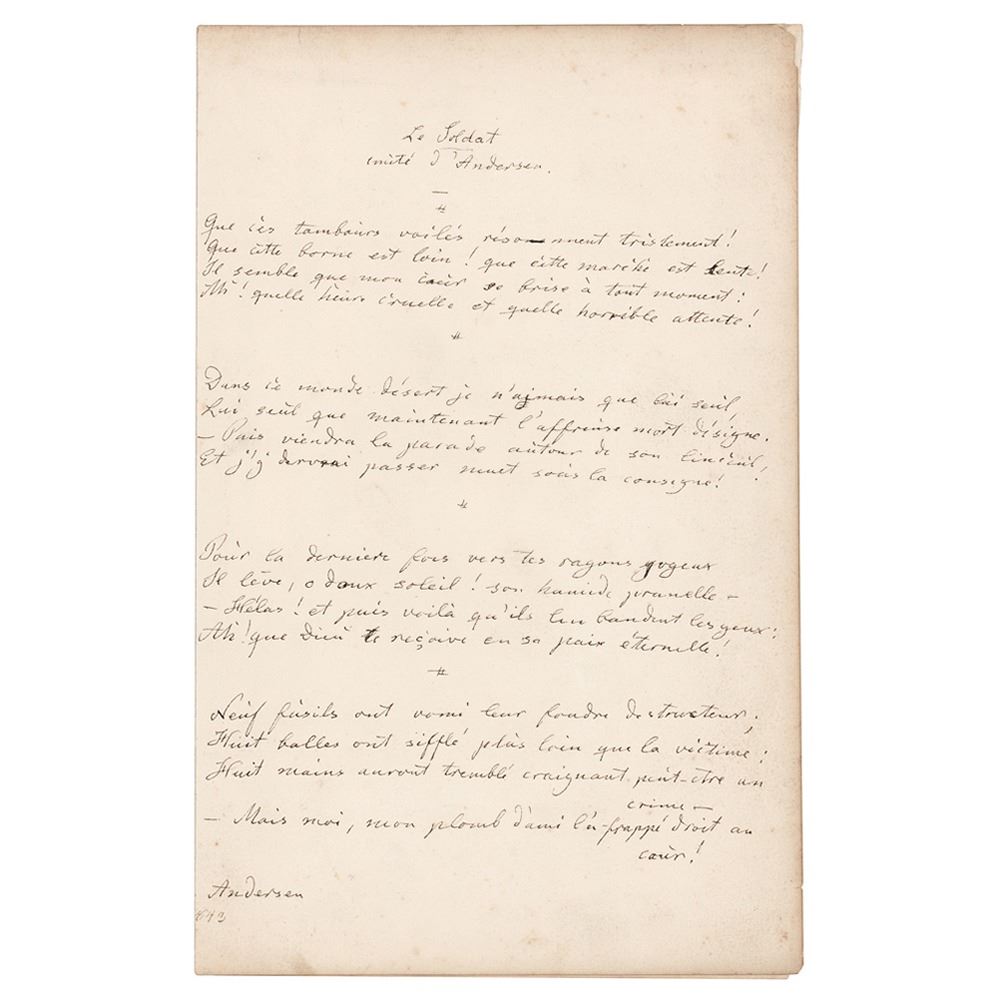 Le Soldat
imité d'Andersen.
#
Que ces tambours voilés résonnent tristement!
Que cette borne est loin! que cette marche est lente!
Il semble que mon cœur se brise à tout moment:
Ah! quelle heure cruelle et quelle horrible attente!
#
Dans ce monde désert je n'aimais que lui seul,
Lui seul que maintenant l'affreuse mort désigne.
– Puis viendra la parade autour de son linceul,
Et j'y devrai passer muet sous la consigne!
#
Pour la derniere fois vers tes rayons joyeux
Il lève, o doux soleil! son humide prunelle –
– Hélas! et puis voilà qu'ils lui bandent les yeux:
Ah! que Dieu te reçoive en sa paix éternelle!
#
Neuf fusils ont vomi leur foudre destructeur;
Huit balles ont sifflé plus loin que la victime:
Huit mains auront tremblé craignant peut-être un
crime –
– Mais moi, mon plomb d'ami l'a frappé droit au
cœur!
Andersen
1843